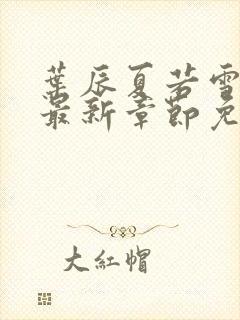 葉辰夏若雪
最新章節免
大紅帽